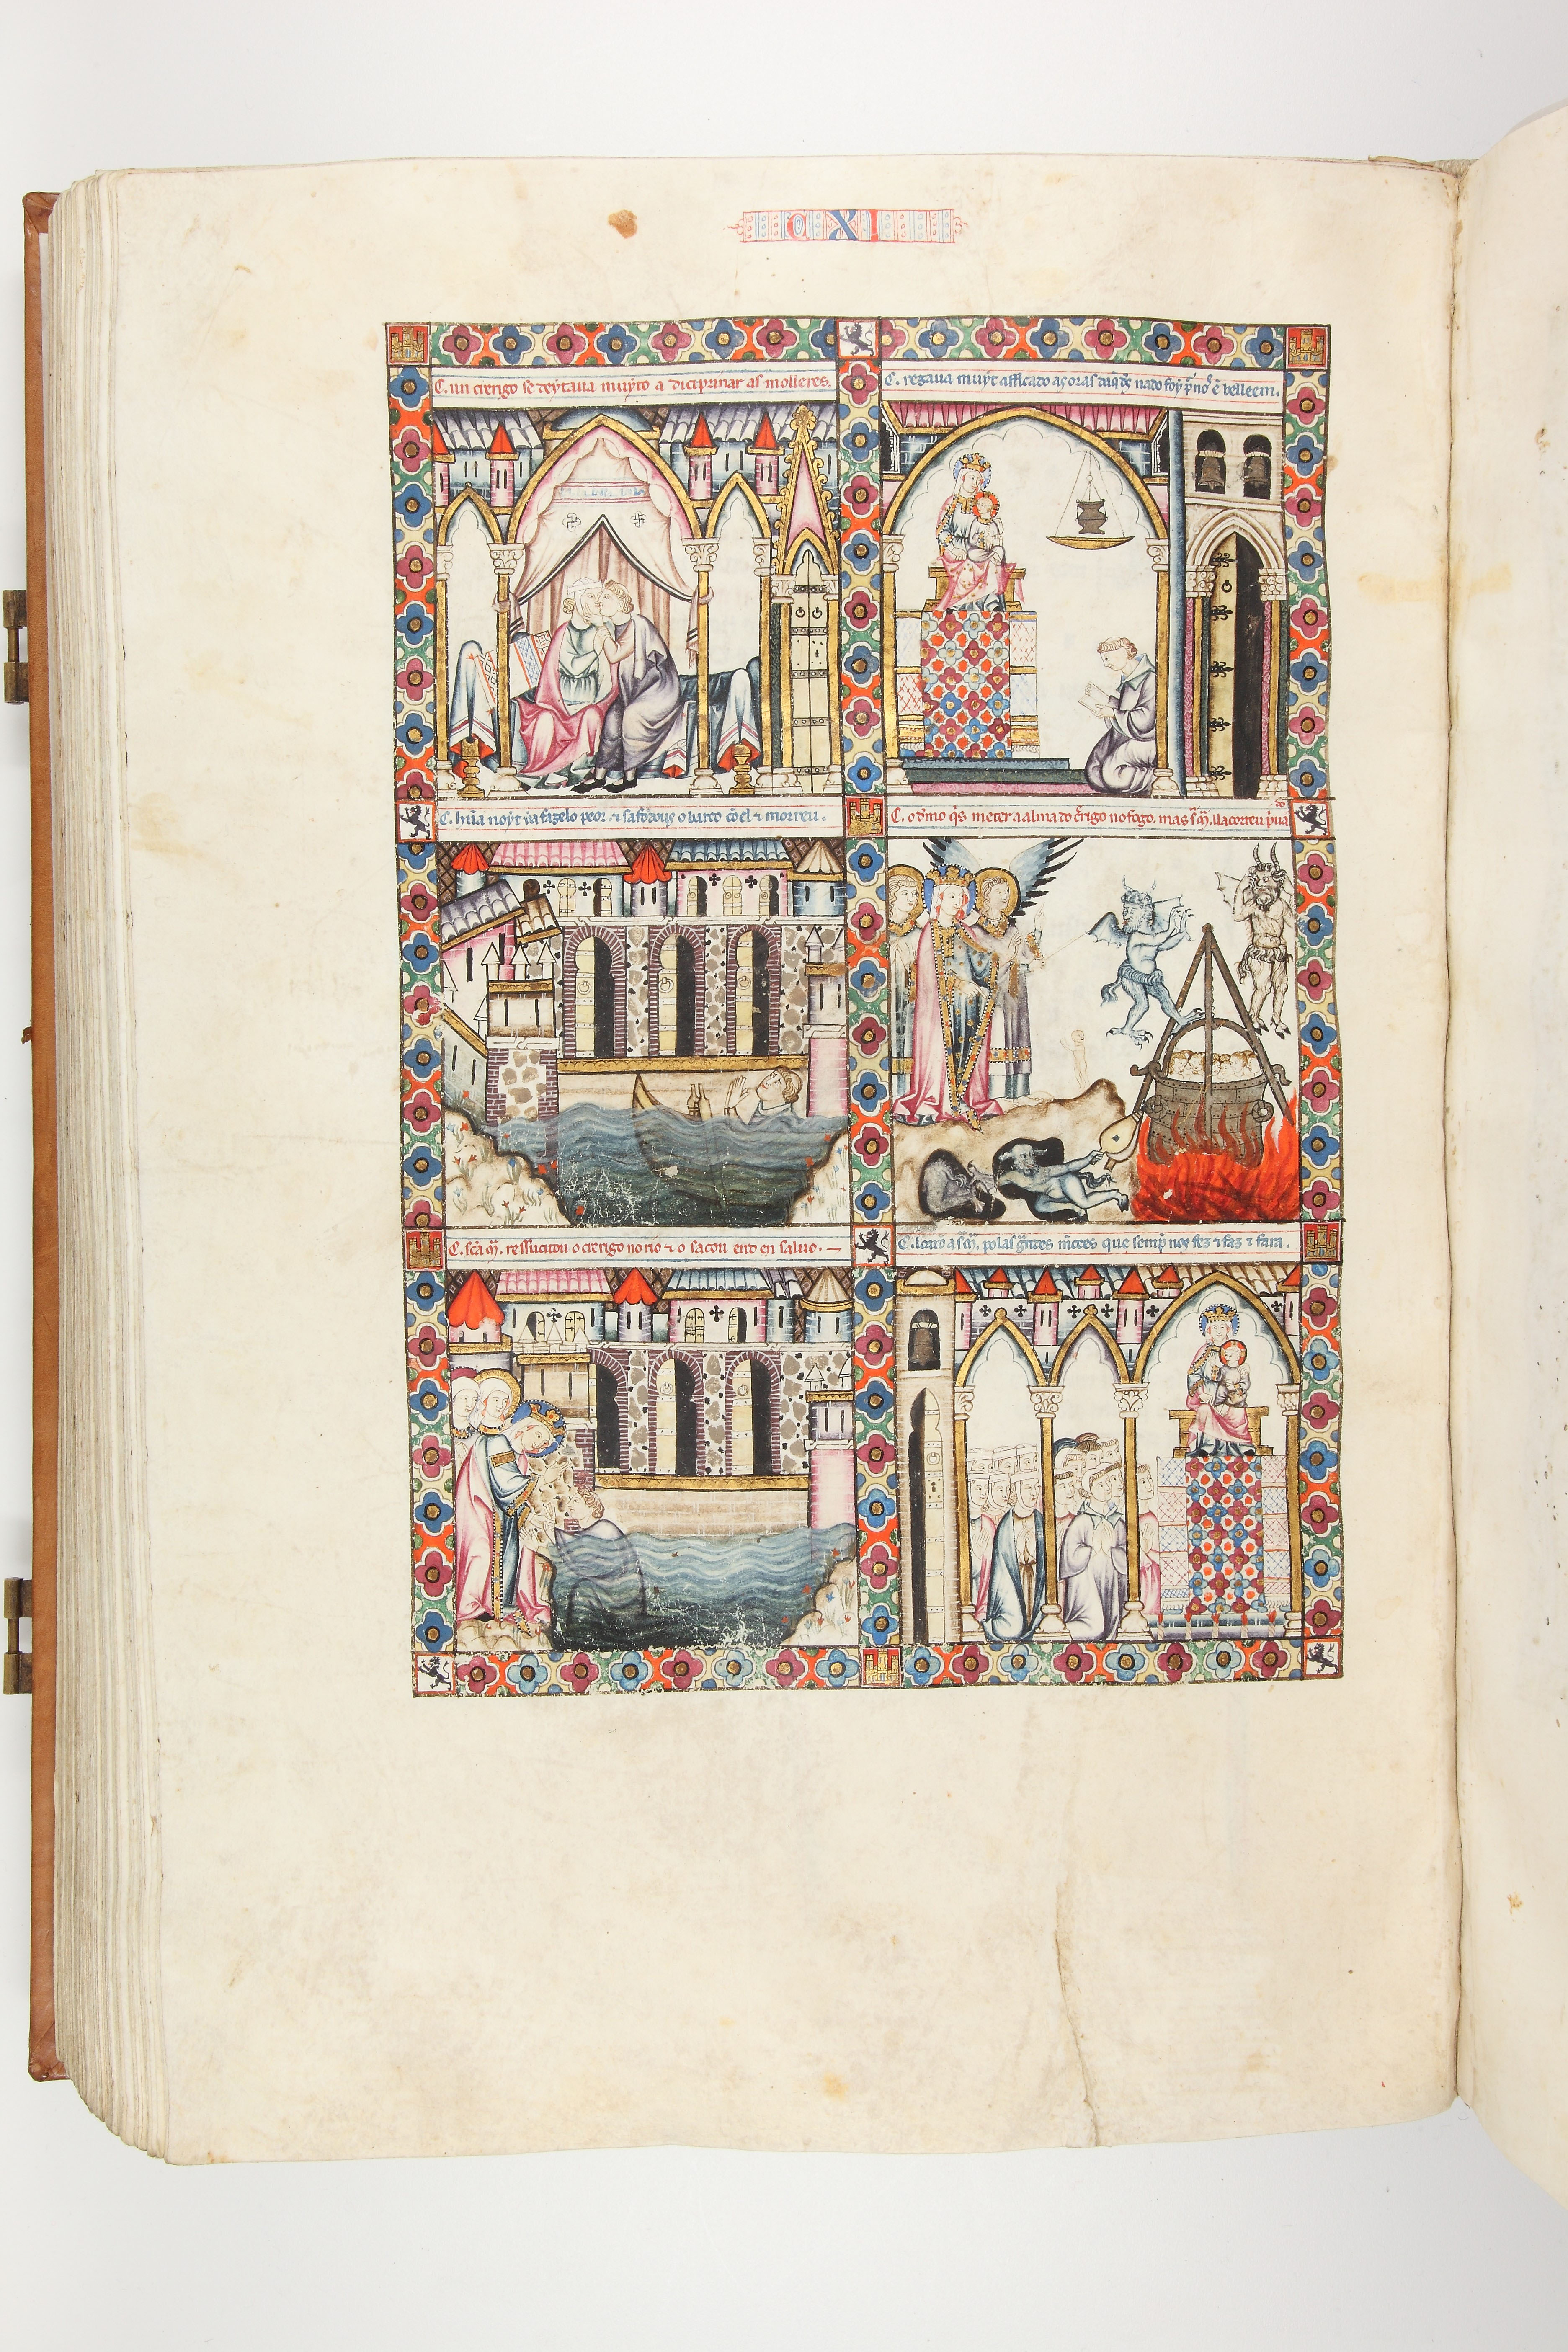 C XI
C. un crerigo se deytaua muyto a diciprinar as molleres.
C. rezaua muyt afficado as oras daq̄ de nado foy p̄ nos ē belleem.
C. hũa noyt ya fazelo peor ⁊ çafondouss o barco cõ el ⁊ morreu.
C. o demo q̄s meter a alma do c̄rigo no fogo. mas s̃ m̃. lla correu
C. sc̃a m̃. ressucitou o crerigo no rio ⁊ o sacou ende en saluo.
C. a s̃ m̃. polas gr̃des m̃cees que semp̄ nos fez ⁊ faz ⁊ fara.